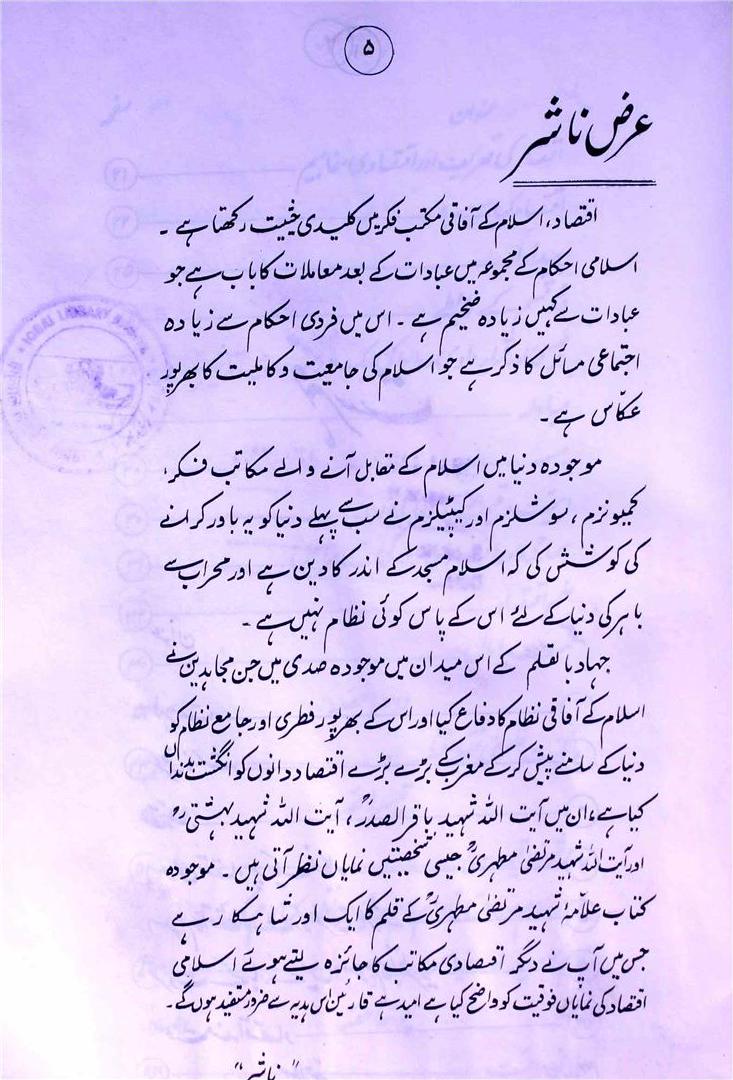 ۵
عرض ناشر
اقتصاد، اسلام کے آفاقی مکتب فکر میں کلیدی حیثیت رکھتا ہے ۔
اسلامی احکام کے مجموعہ میں عبادات کے بعد معاملات کا باب ہے جو
عبادات سے کہیں زیادہ ضخیم ہے ۔ اس میں فردی احکام سے زیادہ
اجتماعی مسائل کا ذکر ہے جو اسلام کی جامعیت و کاملیت کا بھرپور
عکاس ہے ۔
موجودہ دنیا میں اسلام کے مقابل آنے والے مکاتب فکر ،
کمیونزم ، سوشلزم اور کیپٹیلزم نے سب سے پہلے دنیا کو یہ باور کرانے
کی کوشش کی کہ اسلام مسجد کے اندر کا دین ہے اور محراب سے
باہر کی دنیا کے لئے اس کے پاس کوئی نظام نہیں ہے ۔
جہاد بالقلم کے اس میدان میں موجودہ صدی میں جن مجاہدین نے
اسلام کے آفاقی نظام کا دفاع کیا اور اس کے بھرپور فطری اور جامع نظام کو
دنیا کے سامنے پیش کر کے مغرب کے بڑے بڑے اقتصاد دانوں کو انگشت بدنداں
کیا ہے ، ان میں آیت اللہ شہید باقر الصدرؒ ، آیت اللہ شہید بہشتیؒ
اور آیت اللہ شہید مرتضیٰ مطہریؒ جیسی شخصیتیں نمایاں نظر آتی ہیں ۔ موجودہ
کتاب علامہ شہید مرتضیٰ مطہریؒ کے قلم کا ایک اور شاہکار ہے
جس میں آپ نے دیگر اقتصادی مکاتب کا جائزہ لیتے ہوئے اسلامی
اقتصاد کی نمایاں فوقیت کو واضح کیا ہے امید ہے قارئین اس ہدیہ سے ضرور مستفید ہوں گے ۔
"ناشر"